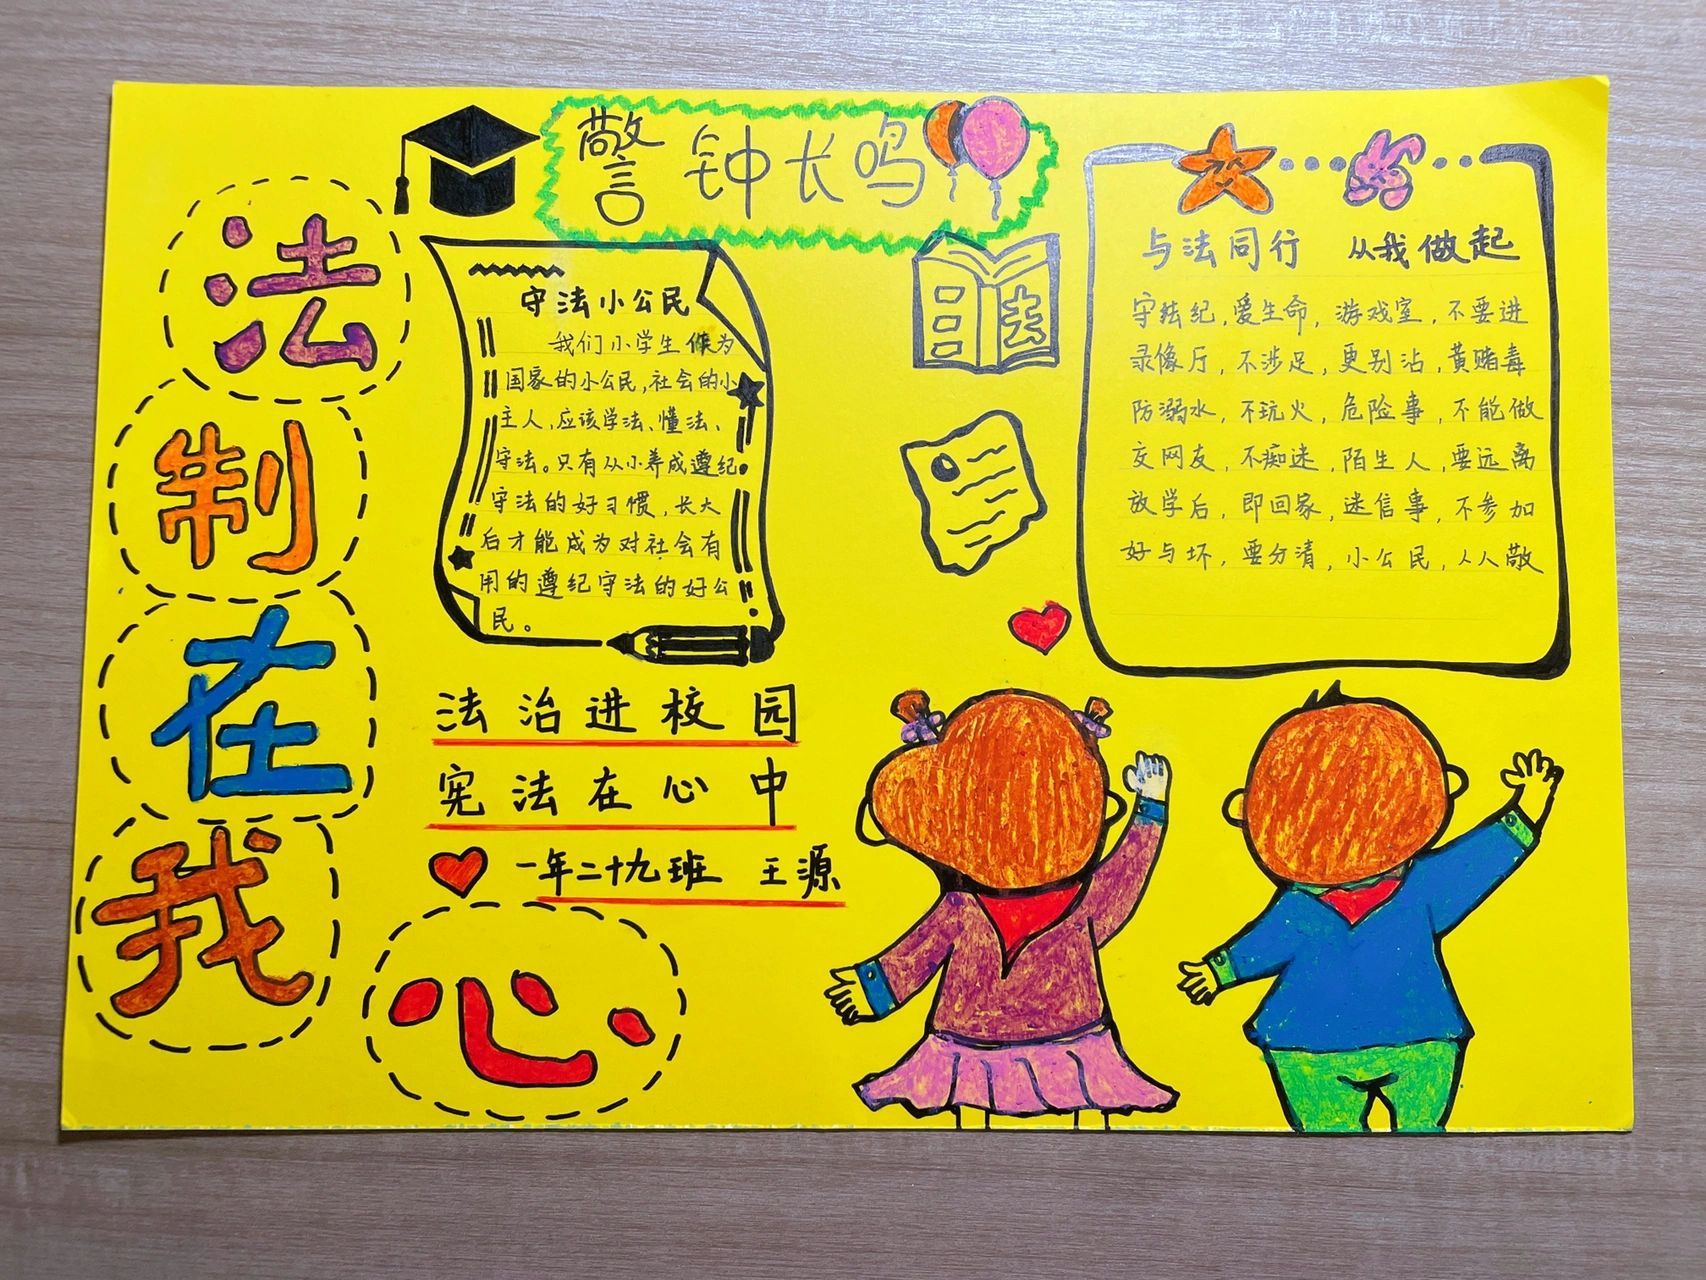 法
制
在
我
心
警钟长鸣
守法小公民
我们小学生作为
国家的小公民,社会的小
主人,应该学法、懂法、
守法。只有从小养成遵纪
守法的好习惯,长大
后才能成为对社会有
用的遵纪守法的好公
民。
法
与法同行 从我做起
守法纪,爱生命,游戏室,不要进
录像厅,不涉足,更别沾,黄赌毒
防溺水,不玩火,危险事,不能做
交网友,不痴迷,陌生人,要远离
放学后,即回家,迷信事,不参加
好与坏,要分清,小公民,人人敬
法治进校园
宪法在心中
一年二十九班 王源